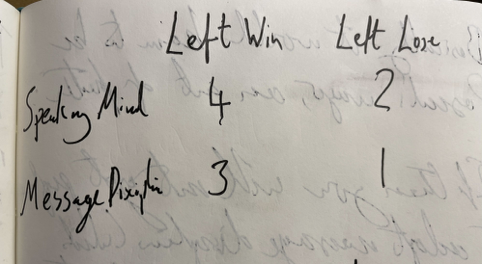 Left Win Left Lose
Speaking Mind 4 2
Message Disciplin 3 1